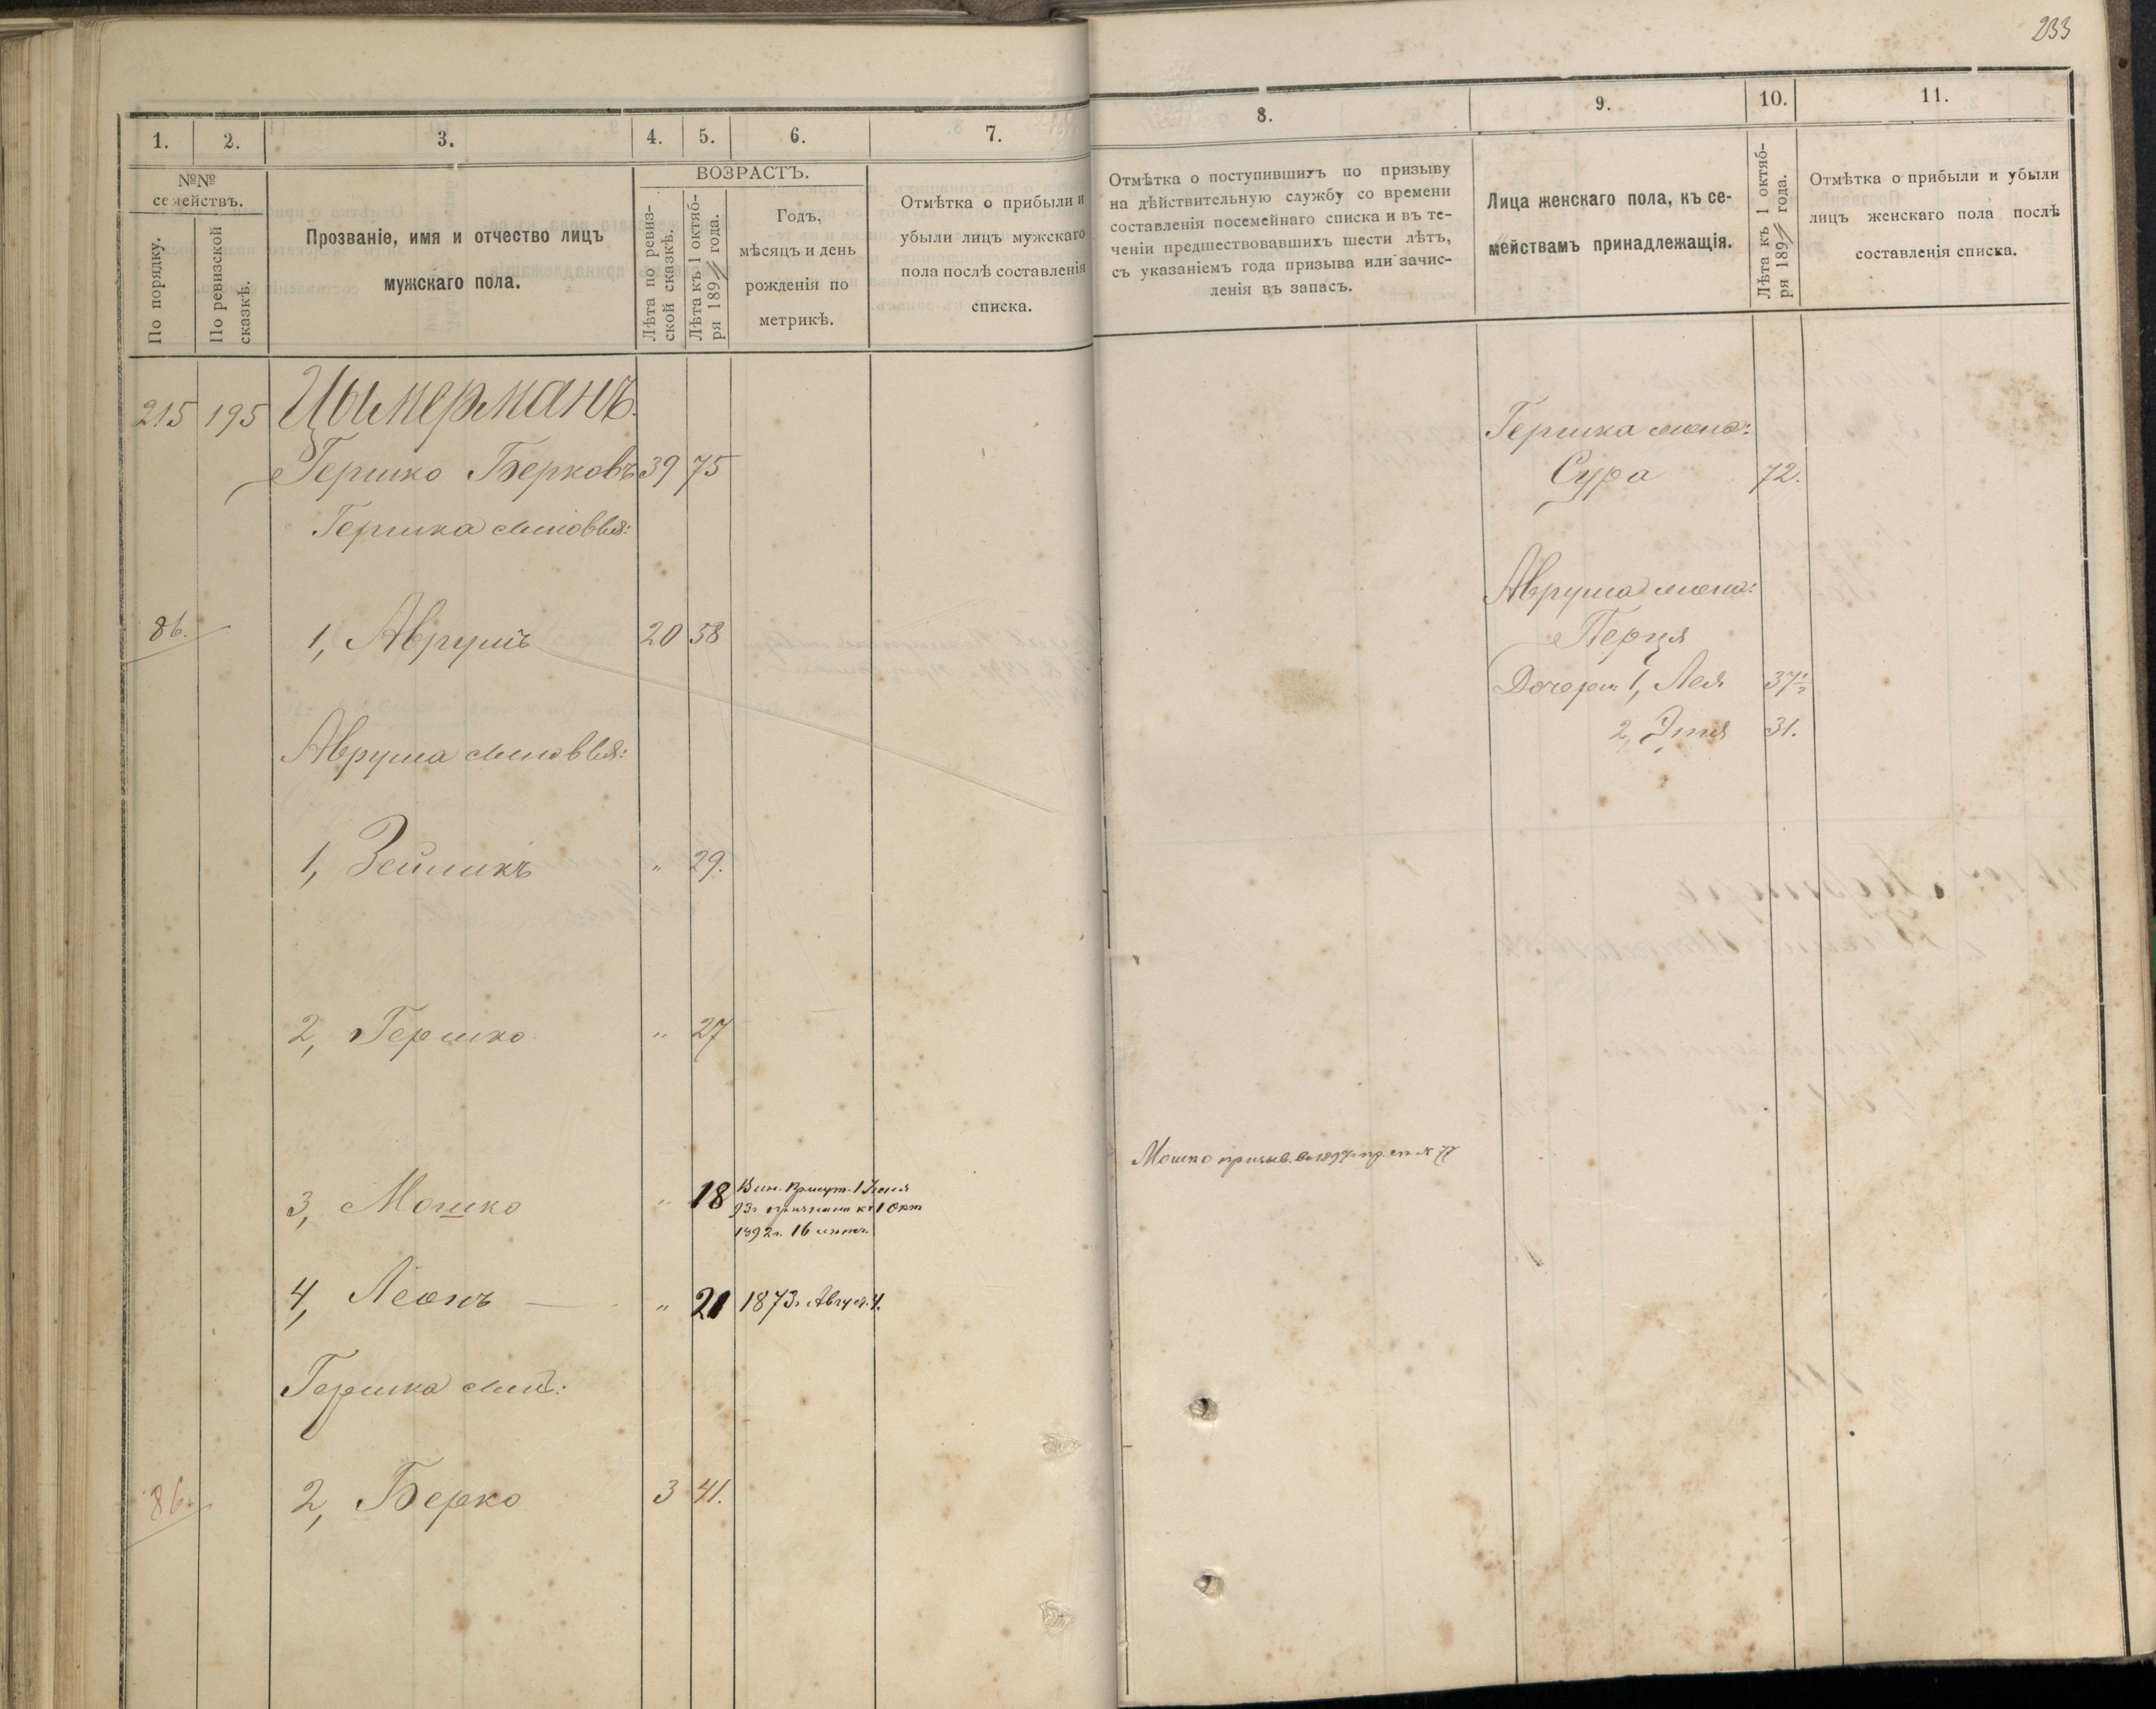 233
1.
2.
3.
4.
5.
6.
7.
№№ семействъ.
По порядку.
По ревизской сказкѣ.
Прозваніе, имя и отчество лицъ
мужскаго пола.
ВОЗРАСТЪ.
Лѣта по ревиз-
ской сказкѣ.
Лѣта къ 1 октяб-
ря 189 года.
Годъ,
мѣсяцъ и день
рожденія по
метрикѣ.
Отмѣтка о прибыли и
убыли лицъ мужскаго
пола послѣ составленія
списка.
215 195 Цымерманъ.
Гершко Берковъ 39 75
Гершка сыновья:
86. 1, Аврумъ 20 58
Аврума сыновья:
1, Зейликъ " 29.
2, Гершко " 27
3, Мошко " 18
1892г. 16 лѣтъ.
4, Леонъ " 21 1873г. Август. 4.
Гершка сын:
86. 2, Берко 3 41.
8.
9.
10.
11.
Отмѣтка о поступившихъ по призыву
на дѣйствительную службу со времени
составленія посемейнаго списка и въ те-
ченіи предшествовавшихъ шести лѣтъ,
съ указаніемъ года призыва или зачис-
ленія въ запасъ.
Лица женскаго пола, къ се-
мействамъ принадлежащія.
Лѣта къ 1 октяб-
ря 189 года.
Отмѣтка о прибыли и убыли
лицъ женскаго пола послѣ
составленія списка.
Гершка жена:
Сура 72.
Аврума жена:
Перля
Дочери: 1, Лея 37
2, Этя 31.
Мошко призыв. въ 1897 пр. сп. № 77